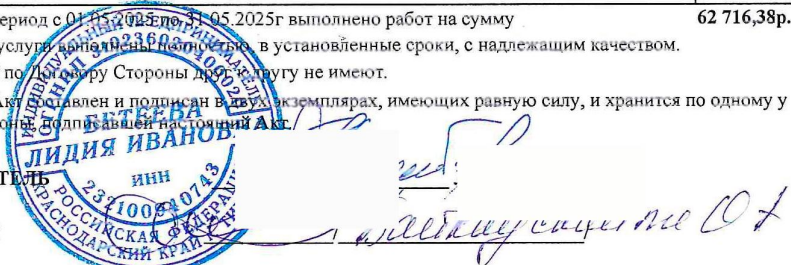 ериод с 01.05.2025 по 31.05.2025г выполнено работ на сумму 62 716,38р.
услуги выполнены полностью, в установленные сроки, с надлежащим качеством.
по Договору Стороны друг к другу не имеют.
Акт составлен и подписан в двух экземплярах, имеющих равную силу, и хранится по одному у
оны, подписавшей настоящий Акт.
БЕТЕЕВА
ЛИДИЯ ИВАНОВ
ИНН
РОССИЙСКАЯ ФЕДЕРАЦИ
КРАСНОДАРСКИЙ КРАЙ
ТЕЛЬ